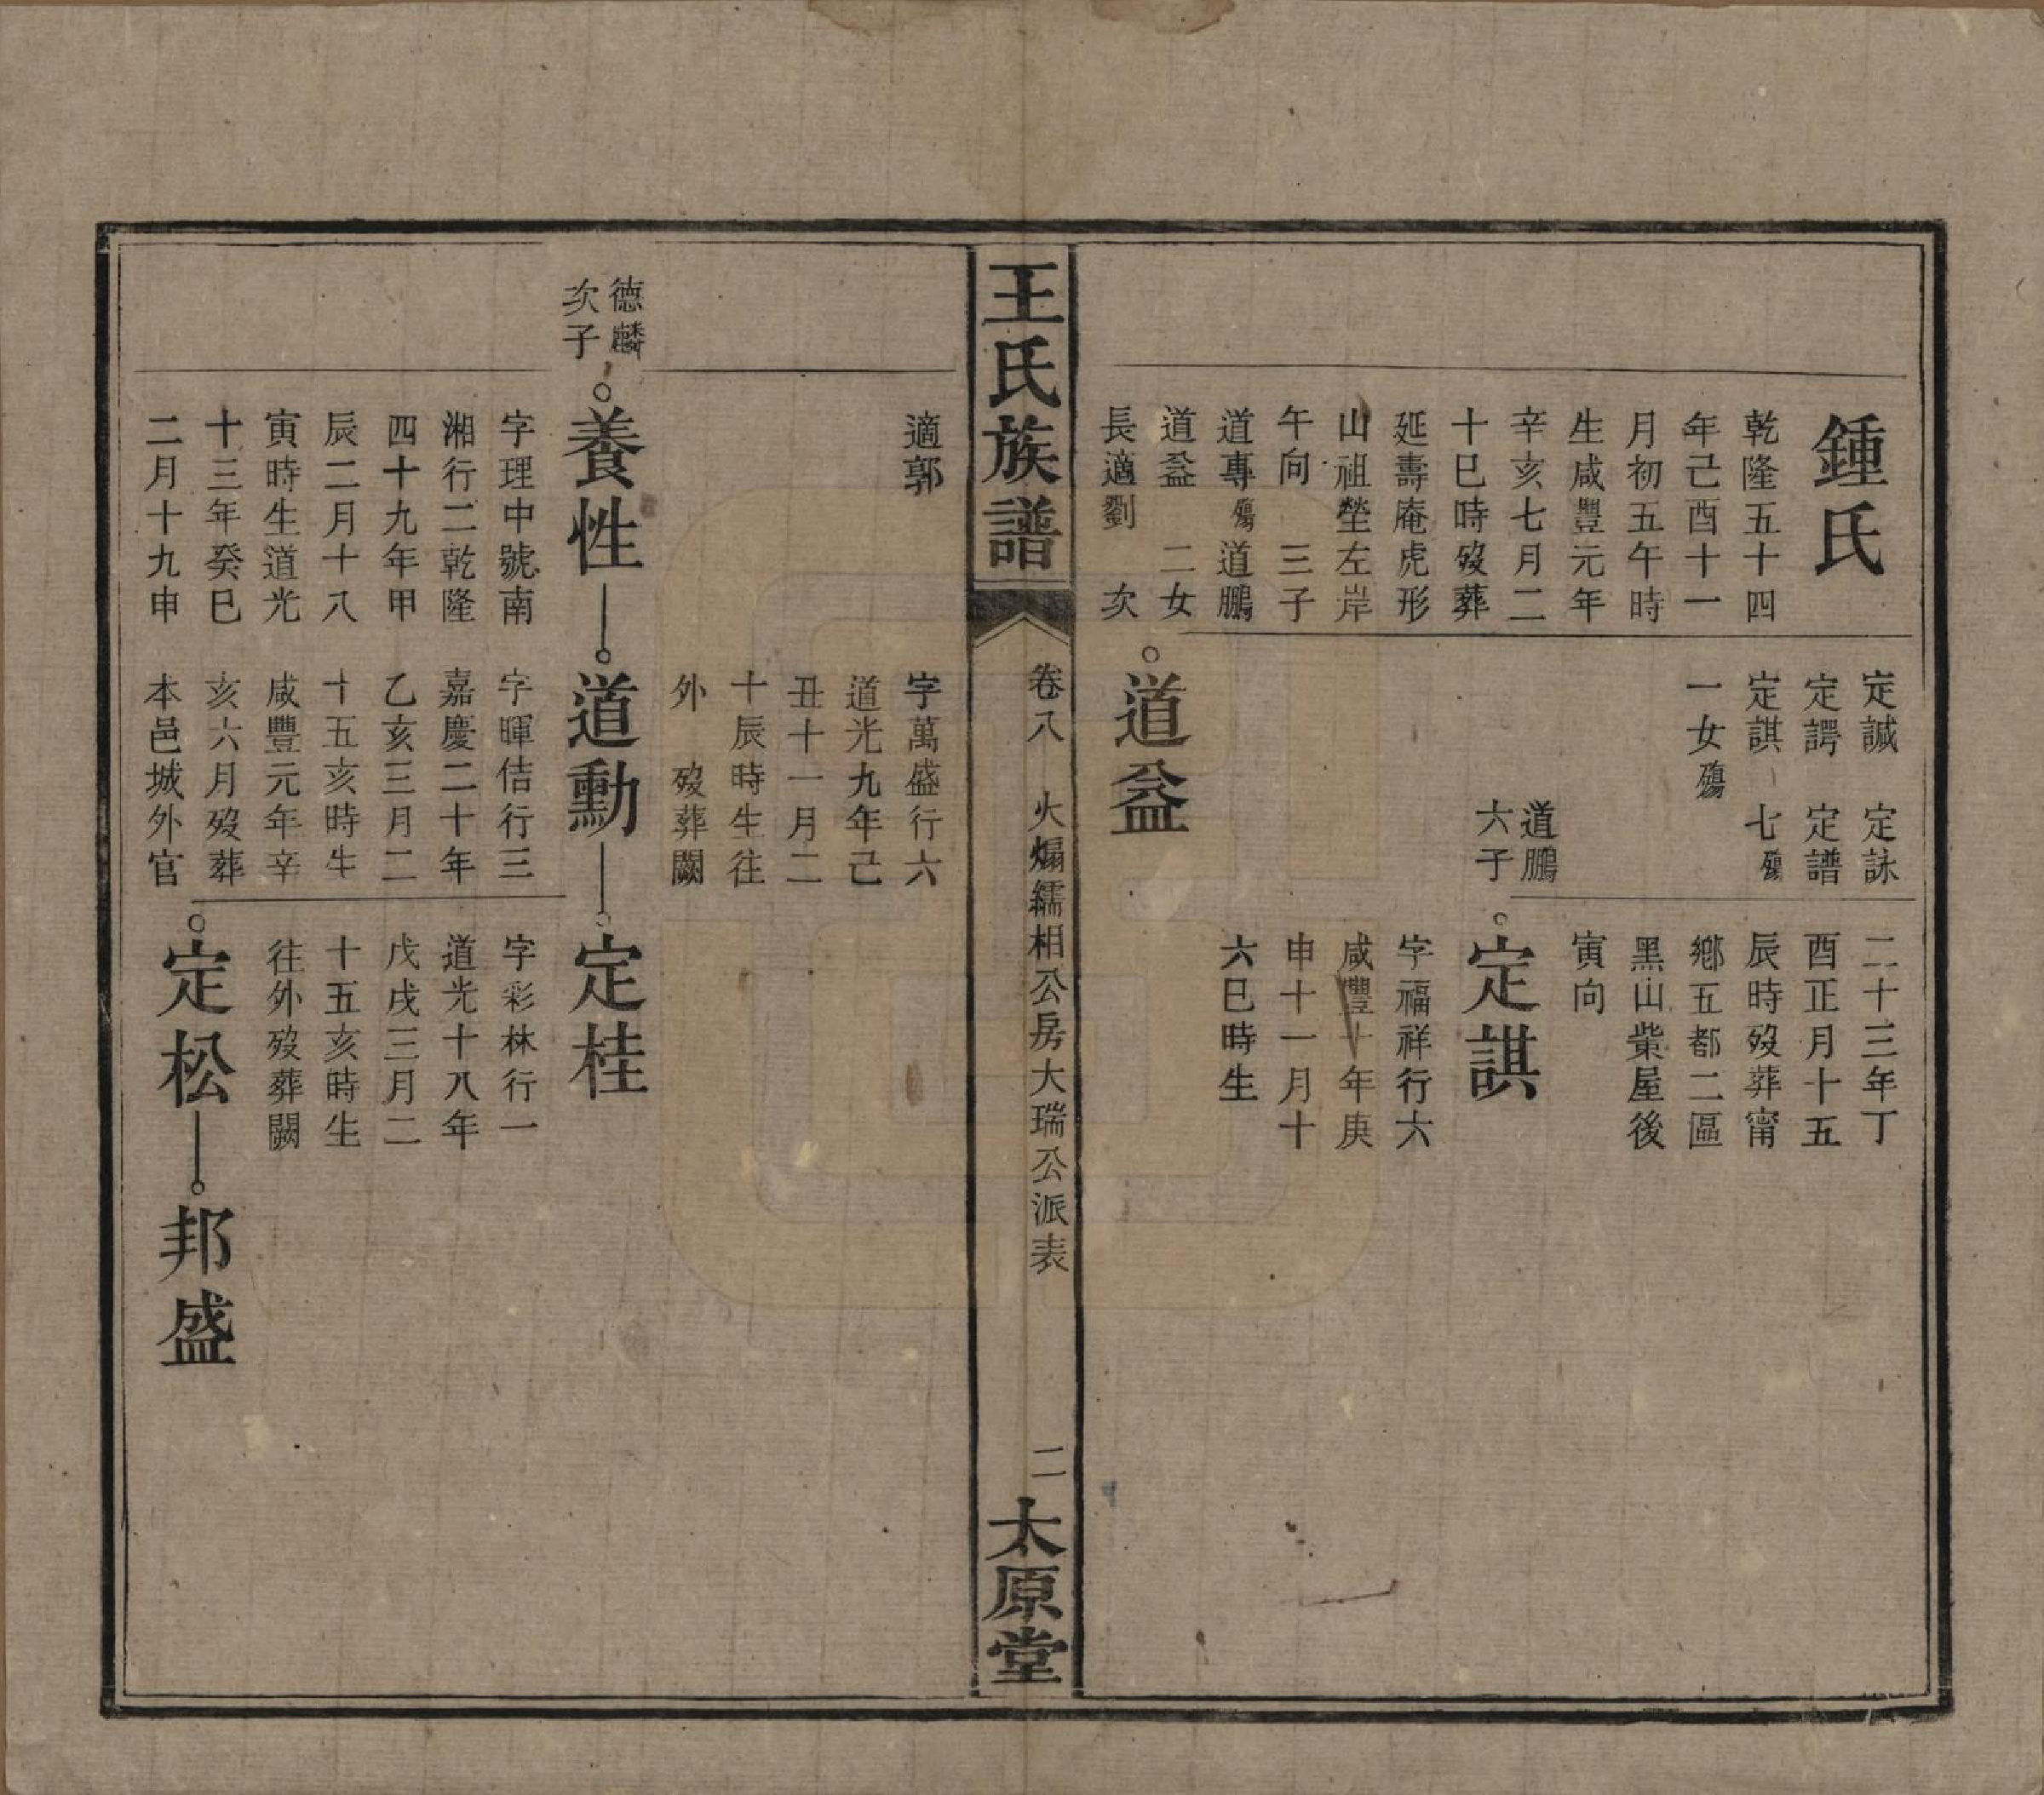 鍾氏
乾隆五十四
年己酉十一
月初五午時
生咸豐元年
辛亥七月二
十巳時歿葬
延壽庵虎形
山祖塋左岸
午向 三子
道專殤道鵬
道益 二女
長適劉 次
定諴 定詠
定諤 定譜
定諆 七殤
一女殤
道鵬
六子
道益
二十三年丁
酉正月十五
辰時歿葬甯
鄉五都二區
黑山柴屋後
寅向
定諆
字福祥行六
咸豐十年庚
申十一月十
六巳時生
王氏族譜
卷八 火煸繻相公房大瑞公派表
二
太原堂
適郭
字萬盛行六
道光九年己
丑十一月二
十辰時生往
外 歿葬闕
德麟
次子
養性
道勳
定桂
字理中號南
湘行二乾隆
四十九年甲
辰二月十八
寅時生道光
十三年癸巳
二月十九申
字暉佶行三
嘉慶二十年
乙亥三月二
十五亥時生
咸豐元年辛
亥六月歿葬
本邑城外官
字彩林行一
道光十八年
戊戌三月二
十五亥時生
往外歿葬闕
定松
邦盛